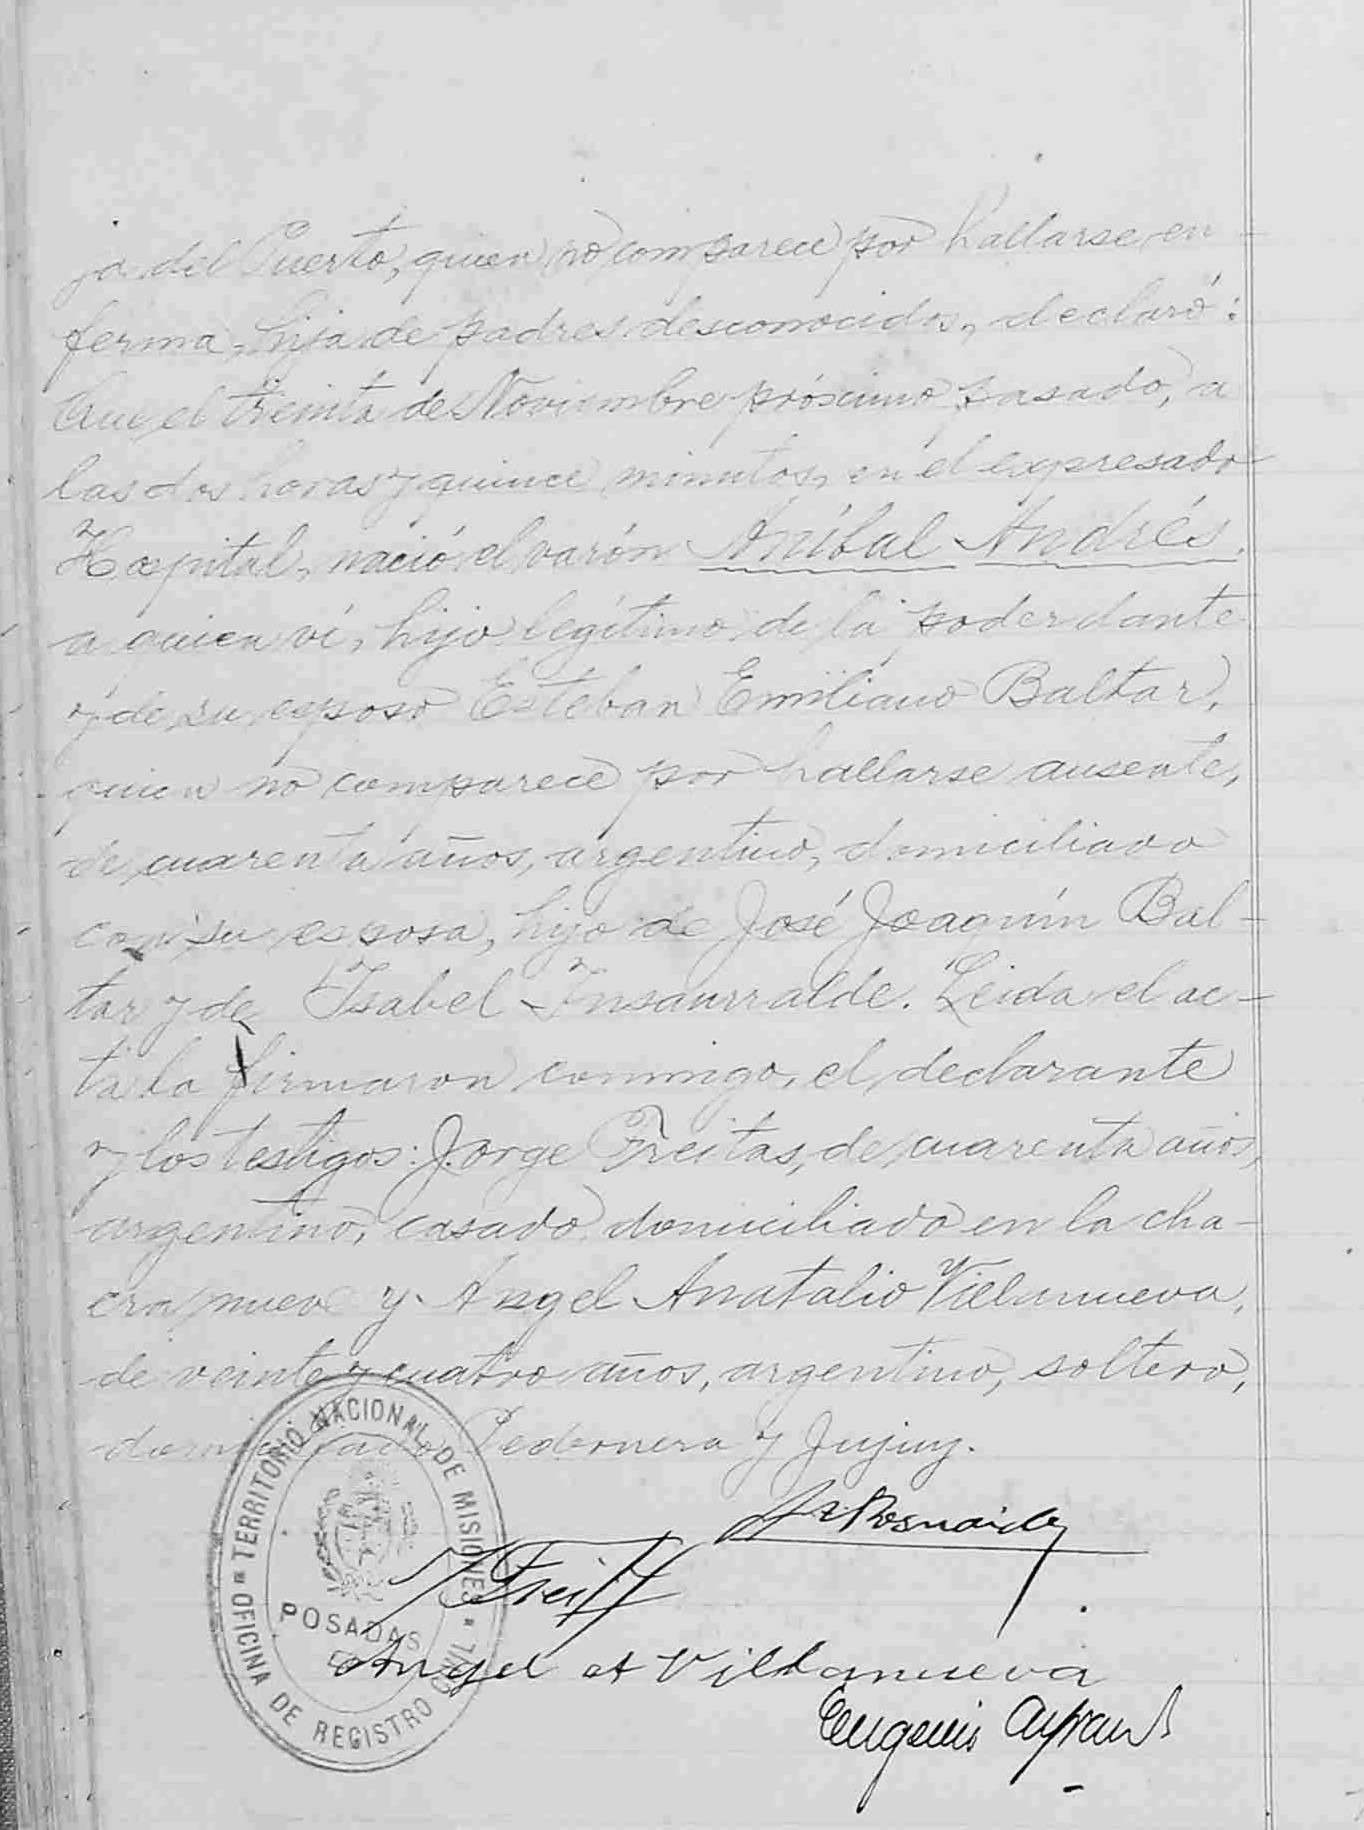 ja del Puerto, quien no comparece por hallarse en-
ferma, hija de padres desconocidos, declaró:
Que el treinta de Noviembre próximo pasado, a
las dos horas y quince minutos, en el expresado
Hospital, nació el varón Aníbal Andrés.
a quien ví, hijo legítimo de la poderdante
y de su esposo Esteban Emiliano Baltar,
quien no comparece por hallarse ausente,
de cuarenta años, argentino, domiciliado
con su esposa, hijo de José Joaquín Bal-
tar y de Isabel Insaurralde. Leida el ac-
ta la firmaron conmigo, el declarante
y los testigos: Jorge Freitas, de cuarenta años,
argentino, casado, domiciliado en la cha-
cra nueve y Angel Anatalio Villanueva,
de veinte y cuatro años, argentino, soltero,
domiciliado Pedernera y Jujuy.
Angel A Villanueva
Eugenio
TERRITORIO NACIONAL DE MISIONES
OFICINA DE REGISTRO CIVIL
POSADAS